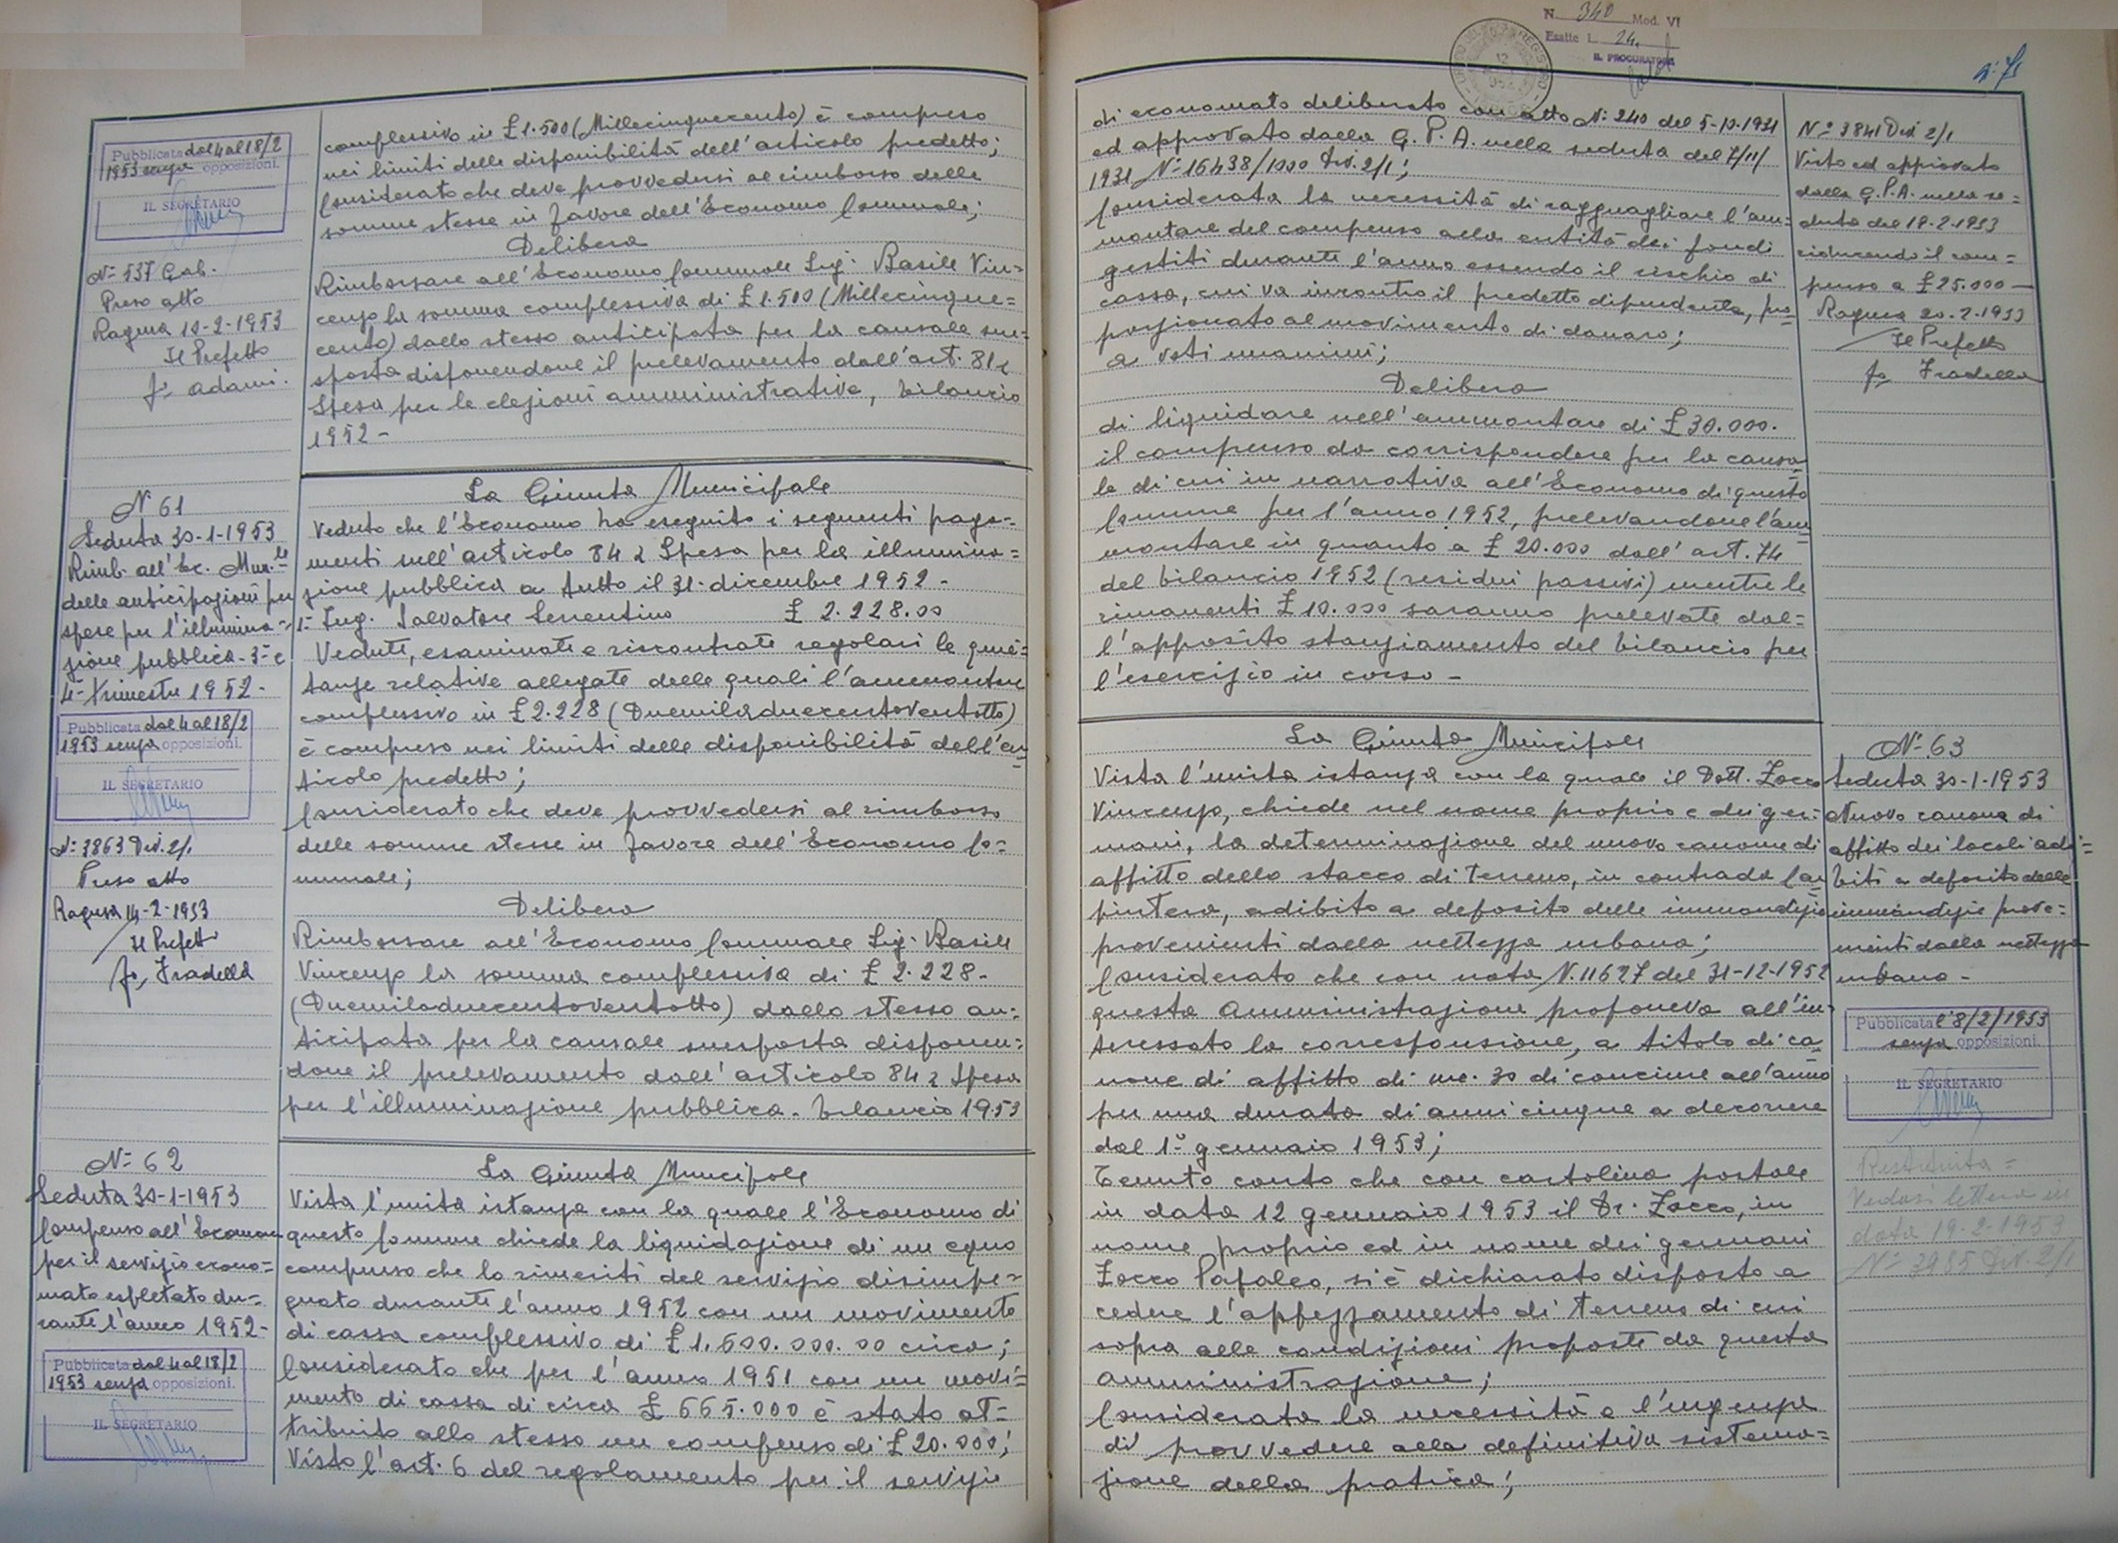 Pubblicata dal 4 al 18/2
1953 senza opposizioni.
IL SEGRETARIO
N= 537 Gab.
Preso atto
Ragusa 10-2-1953
Il Prefetto
fo Adami.
complessivo in £ 1.500 (Millecinquecento) è compreso
nei limiti delle disponibilità dell'articolo predetto;
Considerato che deve provvedersi al rimborso delle
somme stesse in favore dell'Economo Comunale;
Delibera
Rimborsare all'Economo Comunale Sig. Basile Vin=
cenzo la somma complessiva di £ 1.500 (Millecinque=
cento) dallo stesso anticipata per la causale sue=
sposta disponendone il prelevamento dall'art. 81
Spesa per le elezioni amministrative, bilancio
1952-
N 61
Seduta 30-1-1953
Rimb. all'Ec. Mun.le
delle anticipazioni per
spese per l'illumina=
zione pubblica- 3= e
4= trimestre 1952-
Pubblicata dal 4 al 18/2
1953 senza opposizioni.
IL SEGRETARIO
N= 3863 Div. 2/1
Preso atto
Ragusa 14-2-1953
Il Prefetto
fo Fradella
La Giunta Municipale
Veduto che l'Economo ha eseguito i seguenti paga=
menti sull'articolo 84 Spesa per la illumina=
zione pubblica a tutto il 31-dicembre 1952-
1= Ing. Salvatore Serrentino £ 2.228.00
Vedute, esaminate e riscontrate regolari le quie=
tanze relative allegate delle quali l'ammontare
complessivo in £ 2.228 (Duemiladuecentoventotto)
è compreso nei limiti delle disponibilità dell'ar=
ticolo predetto;
Considerato che deve provvedersi al rimborso
delle somme stesse in favore dell'Economo Co=
munale;
Delibera
Rimborsare all'Economo Comunale Sig. Basile
Vincenzo la somma complessiva di £ 2.228-
(Duemiladuecentoventotto) dallo stesso an=
ticipata per la causale suesposta disponen=
done il prelevamento dall'articolo 84 Spesa
per l'illuminazione pubblica- bilancio 1953
N= 62
Seduta 30-1-1953
Compenso all'Economo
per il servizio econo=
mato espletato du=
rante l'anno 1952-
Pubblicata dal 4 al 18/2
1953 senza opposizioni.
IL SEGRETARIO
La Giunta Municipale
Vista l'unita istanza con la quale l'Economo di
questo Comune chiede la liquidazione di un equo
compenso che lo rimeriti del servizio disimpe=
gnato durante l'anno 1952 con un movimento
di cassa complessivo di £ 1.600.000.00 circa;
Considerato che per l'anno 1951 con un movi=
mento di cassa di circa £ 665.000 è stato at=
tribuito allo stesso un compenso di £ 20.000;
Visto l'art. 6 del regolamento per il servizio
N. 340 Mod. VI
Esatte L. 24.
IL PROCURATORE
di economato deliberato con atto N= 240 del 5-10-1931
ed approvato dalla G. P. A. nella seduta del 7/11/
1931 N= 16438/1000 Div. 2/1;
Considerata la necessità di ragguagliare l'am=
montare del compenso alla entità dei fondi
gestiti durante l'anno essendo il rischio di
cassa, cui va incontro il predetto dipendente, pro=
porzionato al movimento di danaro;
a voti unanimi;
Delibera
di liquidare nell'ammontare di £ 30.000.
il compenso da corrispondere per la causa=
le di cui in narrativa all'Economo di questo
Comune per l'anno 1952, prelevandone l'am=
montare in quanto a £ 20.000 dall'art. 74
del bilancio 1952 (residui passivi) mentre le
rimanenti £ 10.000 saranno prelevate dal=
l'apposito stanziamento del bilancio per
l'esercizio in corso-
N= 3841 Div. 2/1
Visto ed approvato
dalla G.P.A. nella se=
duta del 19-2-1953
riducendo il com=
penso a £ 25.000-
Ragusa 20-2-1953
Il Prefetto
fo Fradella
La Giunta Municipale
Vista l'unita istanza con la quale il Dott. Zocco
Vincenzo, chiede nel nome proprio e dei ger=
mani, la determinazione del nuovo canone di
affitto dello stacco di terreno, in contrada Car=
pintera, adibito a deposito delle immondizie
provenienti dalla nettezza urbana;
Considerato che con nota N. 11627 del 31-12-1952
questa Amministrazione proponeva all'in=
teressato la corresponsione, a titolo di ca=
none di affitto di mc. 30 di concime all'anno
per una durata di anni cinque a decorrere
dal 1° gennaio 1953;
Tenuto conto che con cartolina postale
in data 12 gennaio 1953 il Dr. Zocco, in
nome proprio ed in nome dei germani
Zocco Pafaleo, si è dichiarato disposto a
cedere l'appezzamento di terreno di cui
sopra alle condizioni proposte da questa
Amministrazione;
Considerata la necessità e l'urgenza
di provvedere alla definitiva sistema=
zione della pratica;
N= 63
Seduta 30-1-1953
Nuovo canone di
affitto dei locali adi=
biti a deposito delle
immondizie prove=
nienti dalla nettezza
urbana-
Pubblicata l'8/2/1953
senza opposizioni.
IL SEGRETARIO
Restituita=
Vedasi lettera in
data 19-2-1953
N= 3985 Div. 2/1